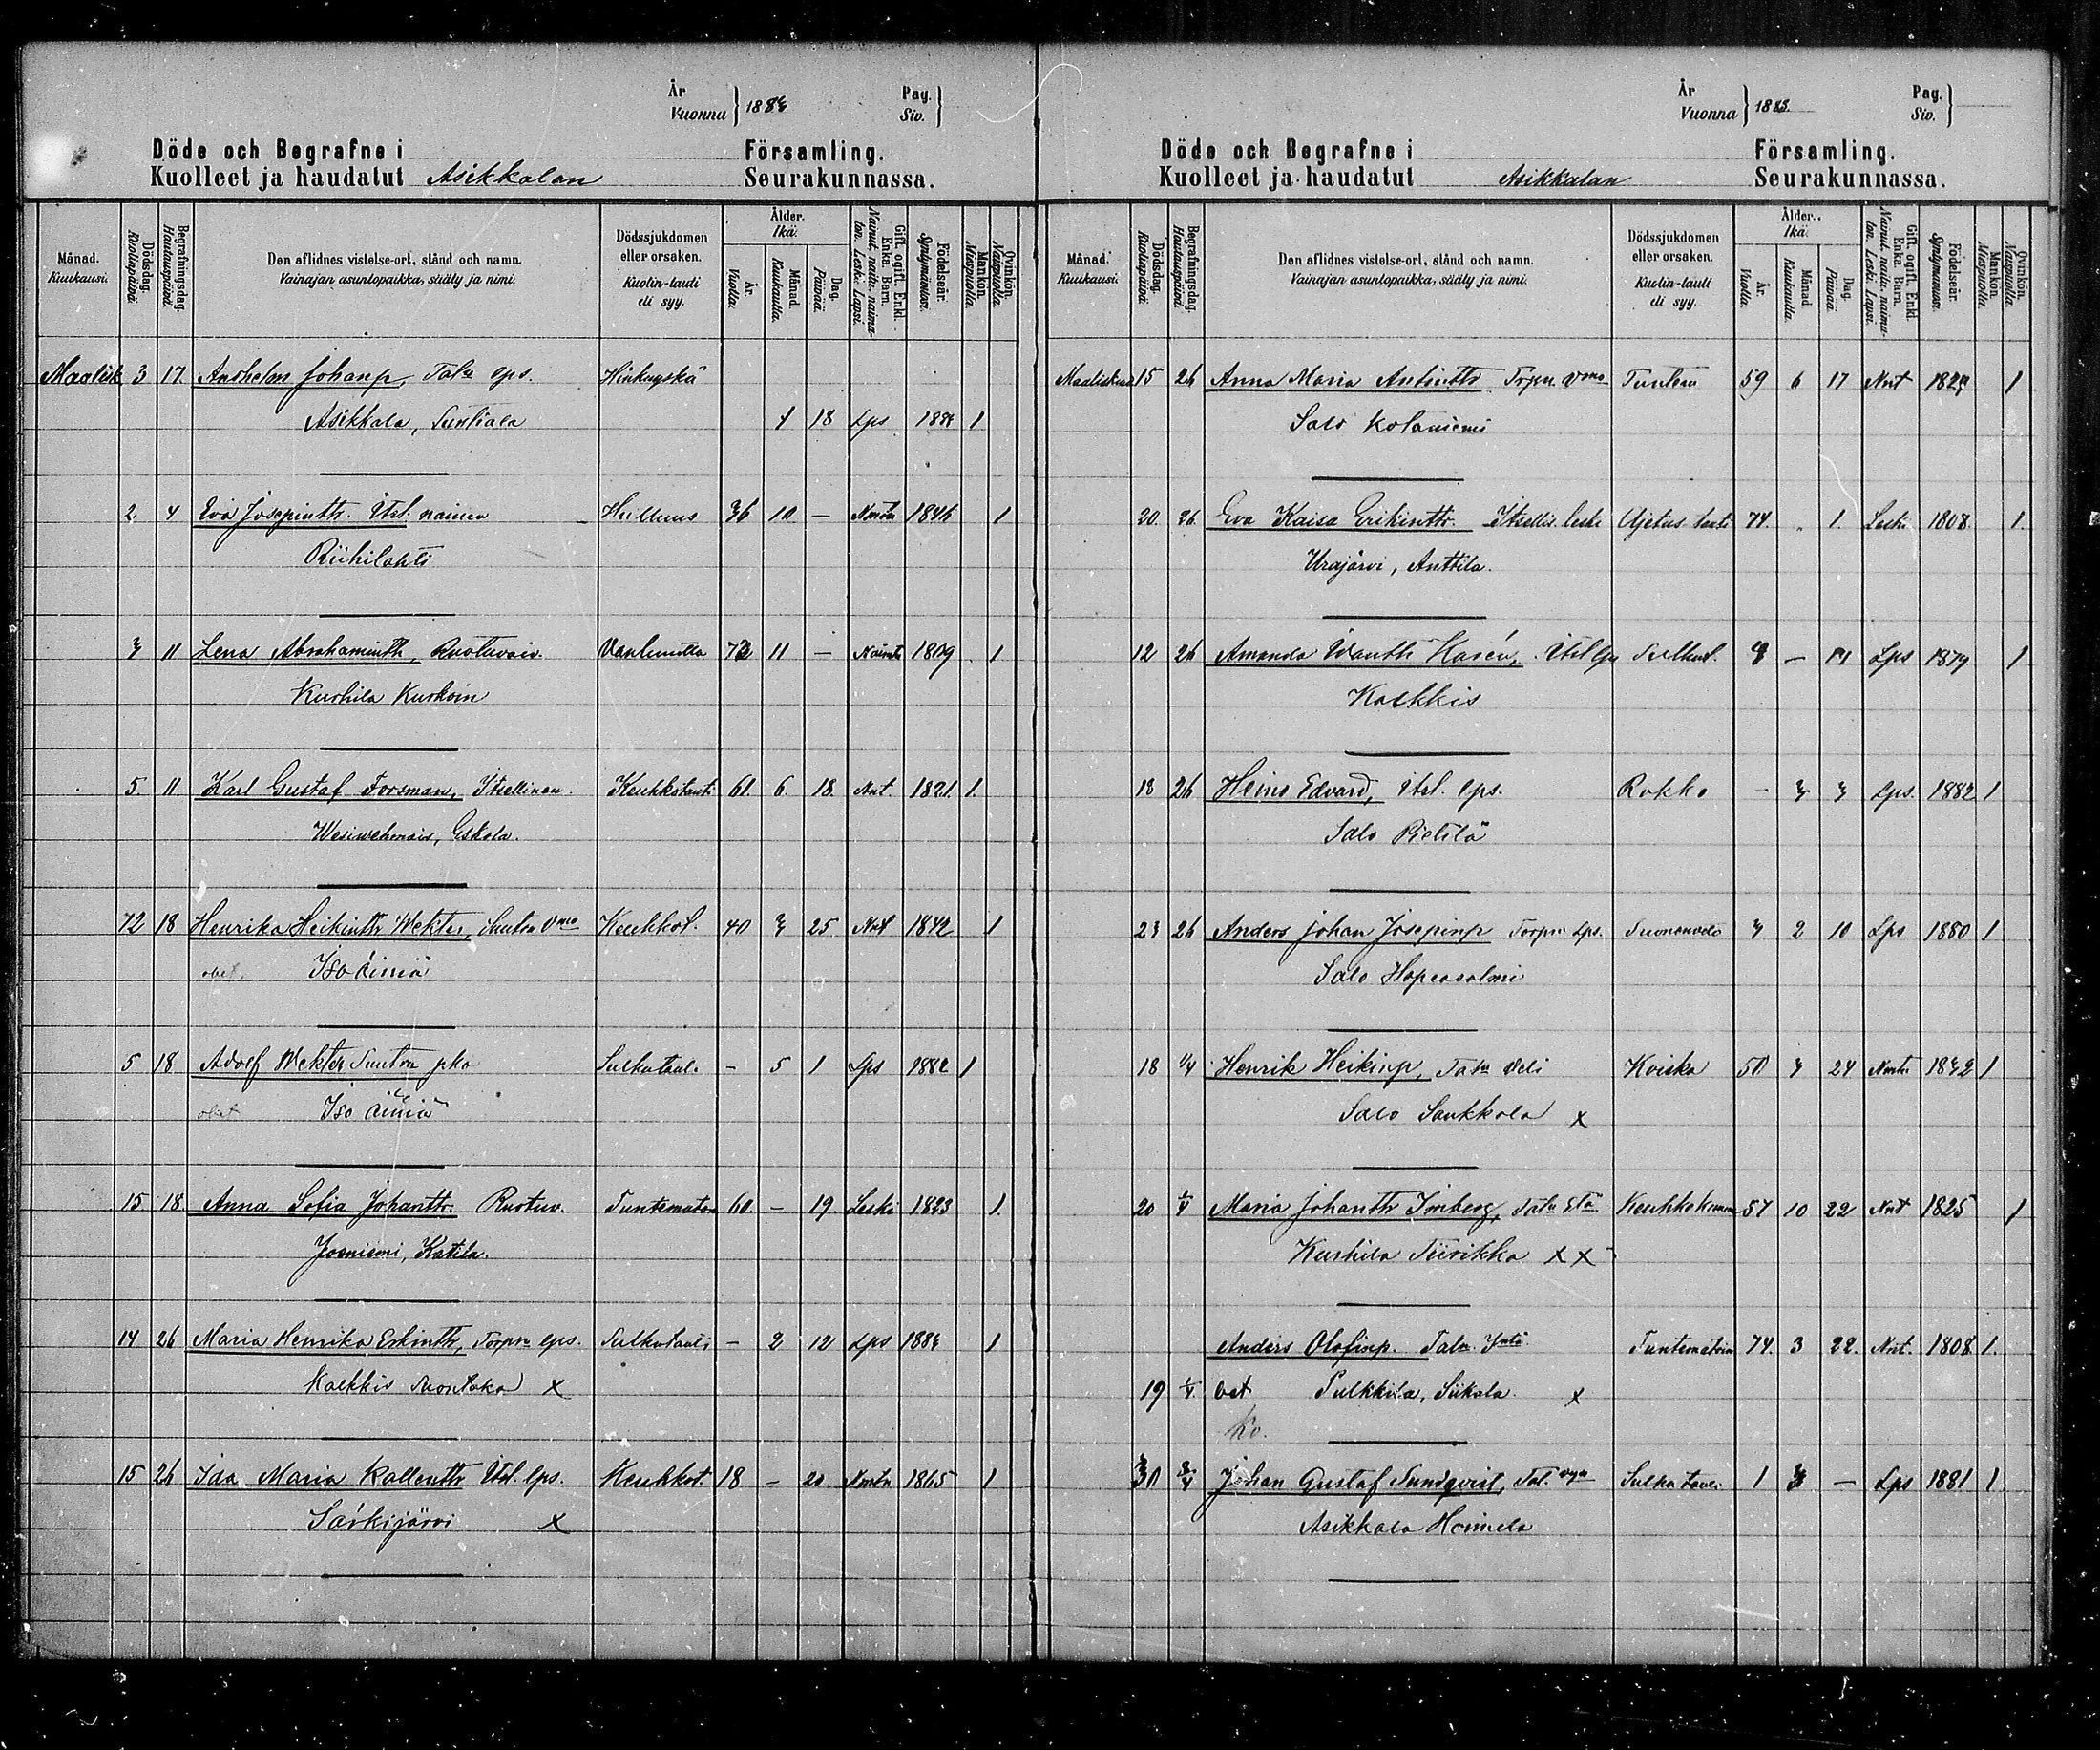 År
Vuonna } 1883
Pag.
Siv. }
Döde och Begrafne i Församling.
Kuolleet ja haudatut Asikkalan Seurakunnassa.
Månad. Kuukausi.
Dödsdag. Kuolinpäivä.
Begrafningsdag. Hautauspäivä.
Den aflidnes vistelse-ort, stånd och namn.
Vainajan asuntopaikka, sääty ja nimi.
Dödssjukdomen eller orsaken.
Kuolin-tauti eli syy.
Ålder. Ikä.
År. Vuotta.
Månad. Kuukautta.
Dag. Päivää.
Gift, ogift. Enkl. Enka. Barn.
Nainut, naitu, naimaton. Leski. Lapsi.
Födelseår. Syntymävuosi.
Mankön. Miespuolta.
Qvinkön. Naispuolta.
Maalisk 3 17 Anshelm Johanp, Taln lps. Hinkuyskä
Asikkala, Suntiala 1 18 Lps 1883 1
2. 4 Eva Josepintr. Itsl. nainen Hulluus 36 10 — Nmtn 1846 1
Riihilahti
3 11 Lena Abrahamintr, Ruotuvaiv. Vanhuutta 73 11 — 1809 1
Kurhila Kurkoin
5. 11 Karl Gustaf Forsman, Itsellinen. Keuhkotauti 61. 6. 18. Nnt. 1821. 1.
Wesiwehmais, Eskola.
12 18 Henrika Heikintr Wekter, Suutn Vmo Keuhkot. 40 3 25 Nnt 1842 1
obet. Iso äiniä
5 18 Adolf Wekter Suutrn pka Sulkutaut. - 5 1 Lps 1882 1
obet Iso äiniä
15. 18. Anna Sofia Johantr. Ruotuv. Tuntematon 60. — 19 Leski 1823 1.
Joeniemi, Katila.
14 26 Maria Henrika Erkintr, Torprn lps. Sulkutauti — 2 12 Lps 1883 1
Kalkkis X
15 26 Ida Maria Kallentr Itsl. lps. Keuhkot. 18 — 20 Nmtn 1865 1
Särkijärvi X
År
Vuonna } 1883.
Pag.
Siv. }
Döde och Begrafne i Församling.
Kuolleet ja haudatut Asikkalan Seurakunnassa.
Månad. Kuukausi.
Dödsdag. Kuolinpäivä.
Begrafningsdag. Hautauspäivä.
Den aflidnes vistelse-ort, stånd och namn.
Vainajan asuntopaikka, sääty ja nimi.
Dödssjukdomen eller orsaken.
Kuolin-tauti eli syy.
Ålder. Ikä.
År. Vuotta.
Månad. Kuukautta.
Dag. Päivää.
Gift, ogift. Enkl. Enka. Barn.
Nainut, naitu, naimaton. Leski. Lapsi.
Födelseår. Syntymävuosi.
Mankön. Miespuolta.
Qvinkön. Naispuolta.
Maaliskuu 15 26 Anna Maria Antintr Torprn Vmo Tuntem 59 6 17 Nnt 1823 1
Salo Kotaniemi
20. 26. Eva Kaisa Erikintr. Itsellis. leski Ajetus tauti 74. „ 1. Leski 1808. 1.
Urajärvi, Anttila.
12 26 Amanda Hasén, Itsl lps Sulkut. — Lps 1879 1
Kalkkis
18 26 Heino Edvard, Itsl. lps. Rokko — 3 3 Lps. 1882 1
Salo Pietilä
23 26 Anders Johan Josepinp Torprn Lps. Suonenveto 3 2 10 Lps 1880 1
Salo Hopeasalmi
18 1/4 Henrik Heikinp, Taln Veli Koiska 50 3 24 Nmtn 1832 1
Salo Saukkola X
20 1/4 Maria Johantr Imberg, Taln Keuhkokuume 57 10 22 Nnt 1825 1
Kurhila Tiirikka X X
Anders Olofinp. Taln. Tuntematoin 74. 3 22. Nnt. 1808 1.
19 Pulkkila, Siikala. X
30 Johan Gustaf Sundqvist, Tal. Sulku tauti 1 3 — Lps 1881 1
Asikkala Heinola